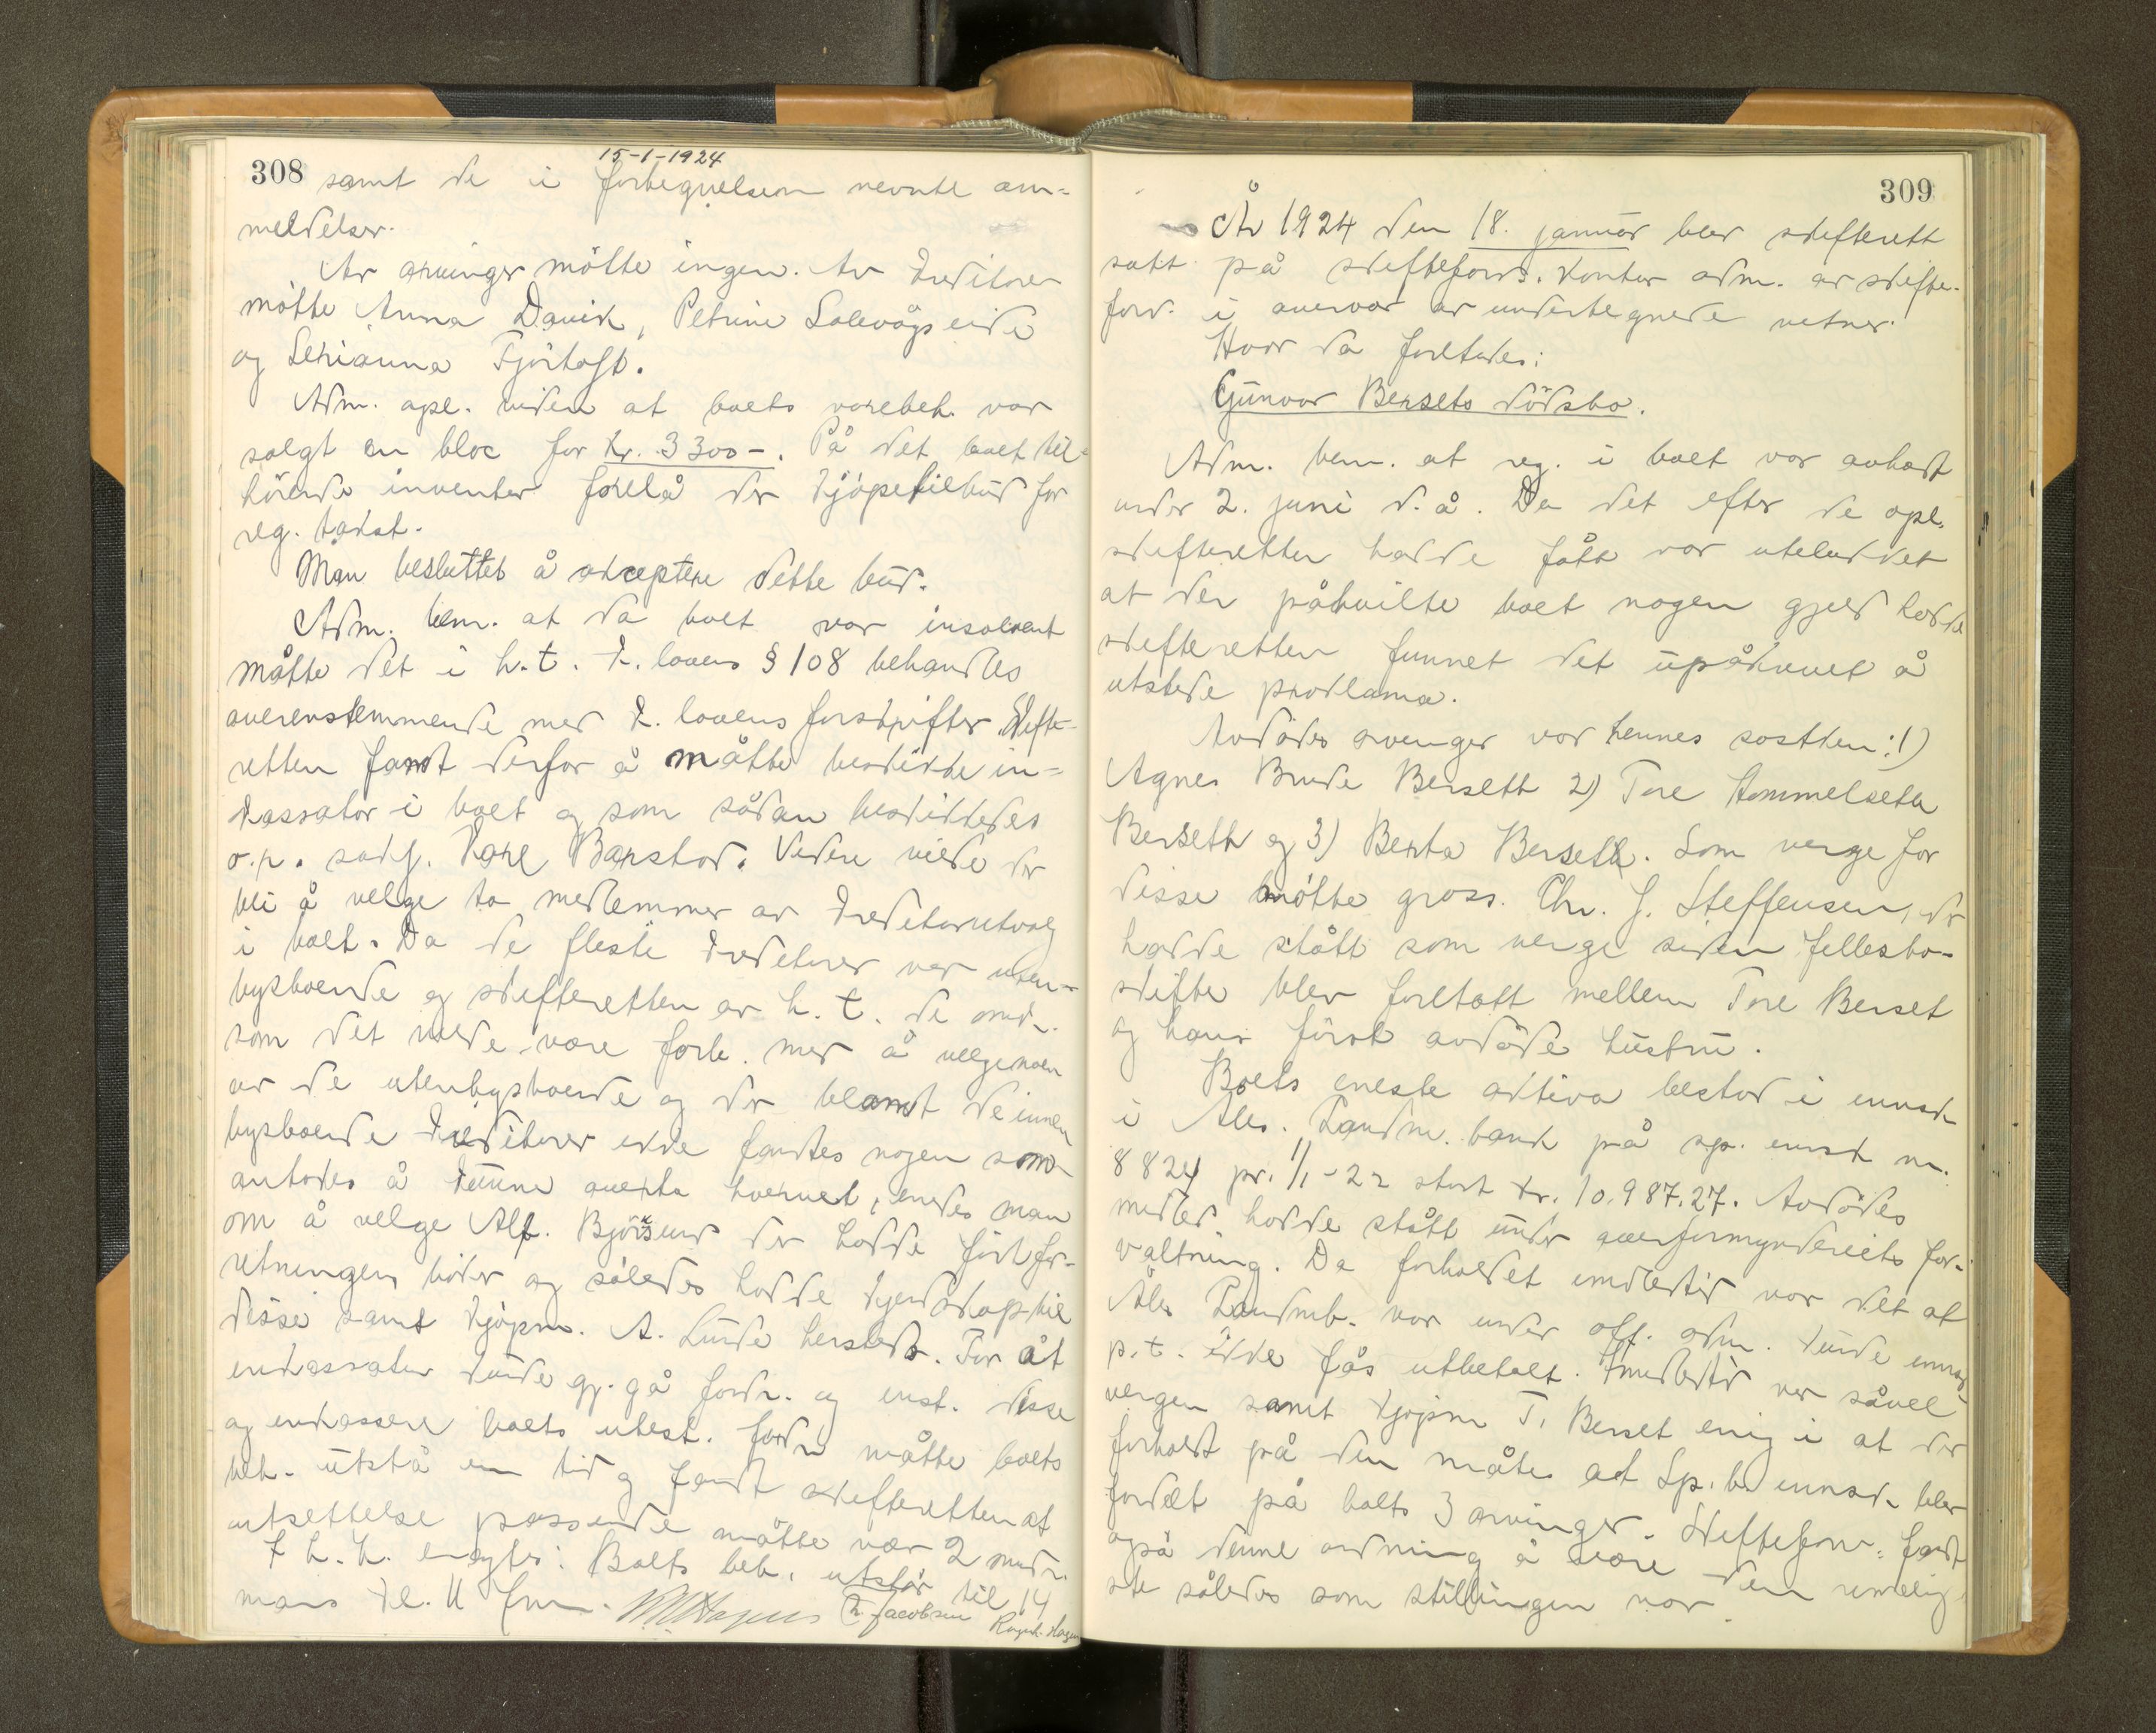 308
15-1-1924
samt de i fortegnelsen nevnte an-
meldelser.
Av arvinger møtte ingen. Av kreditorer
møtte Anna Davik, Petrine Solevågseide
og Serianna Fjørtoft.
Adm. opl. viden at boets varebeh. var
solgt en bloc for kr. 3300-. På det boet til-
hørende inventar forelå der kjøpetilbud for
reg. takst.
Man besluttet å akceptere dette bud.
Adm. bem. at da boet var insolvent
måtte det i h.t. k. lovens § 108 behandles
overenstemmende med k. lovens forskrifter. Skifte-
retten fandt derfor å måtte beskikke in-
kassator i boet og som sådan beskikkedes
o.r. sakf. Kåre Barstad. Videre vilde der
bli å velge to medlemmer av kreditorutvalg
i boet. Da de fleste kreditorer var uten-
bysboende og skifteretten av h. t. de omk.
som det vilde være forb. med å velge noen
av de utenbysboende og der blandt de innen
bysboende kreditorer ikke fandtes nogen som
antokes å kunne overta hvervet, enedes man
om å velge Alf. Bjørkeng der hadde ført for-
retningens bøker og således hadde kjendskap til
disse samt kjøpm. A. Lunde hersteds. For at
inkassator kunde gj. gå fordr. og inst. disse
og inkassere boets utest. fordr. måtte boets
beh. utstå en tid og fandt skifteretten at
utsettelse passende måtte vær 2 mndr.
T h. h. eragtes: Boets beh. utstår til 14
mars kl. 11 fm. Hagen Th. Jacobsen Ragnh. Hagen
309
År 1924 den 18. januar blev skifterett
satt på skifteforv. kontor adm. av skifte-
forv. i overvær av undertegnede vitner.
Hvor da foretokes:
Gunvor Bersets dødsbo.
Adm. bem. at reg. i boet var avholdt
under 2. juni d.å. Da det efter de opl.
skifteretten hadde fått var utelukket
at der påhvilte boet nogen gjeld hadde
skifteretten funnet det upåkrevet å
utstede proklama.
Avdødes arvinger var hennes søsken: 1)
Agnes Brude Bersett 2) Tore Hommelseth
Berseth og 3) Berta Berseth. Som verge for
disse møtte gross. Chr. J. Steffensen, der
hadde stått som verge siden fellesbo-
skifte blev foretatt mellem Tore Berset
og hans først avdøde hustru.
Boets eneste aktiva bestod i innsk.
i Åles. Landm. bank på sp. innsk nr.
8824 pr. 1/1-22 stort kr. 10.987.27. Avdødes
midler hadde stått under overformynderiets for-
valtning. Da forholdet imidlertid var det at
Åles Landmb. var under off. adm. kunde innsk.
p.t. ikke fås utbetalt. Imidlertid var såvel
vergen samt kjøpm T. Berset enig i at der
forholdt på den måte at Sp.b. innsk. blev
fordelt på boets 3 arvinger. Skifteforv. fandt
også denne ordning å være den rimelig-
ste således som stillingen var